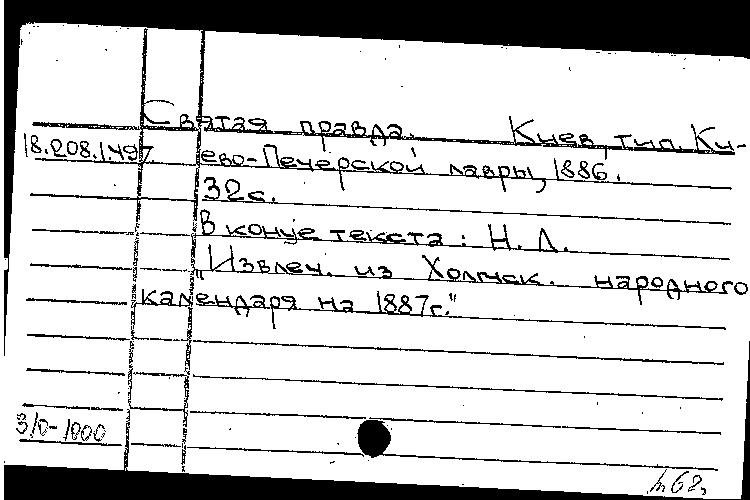 Святая правда. Киев, тип. Ки-
18.208.1.497. ево-Печерской лавры, 1886.
32 с.
В конце текста: Н. Л.
"Извлеч. из Холмск. народного
календаря на 1887г."
3/0-1000